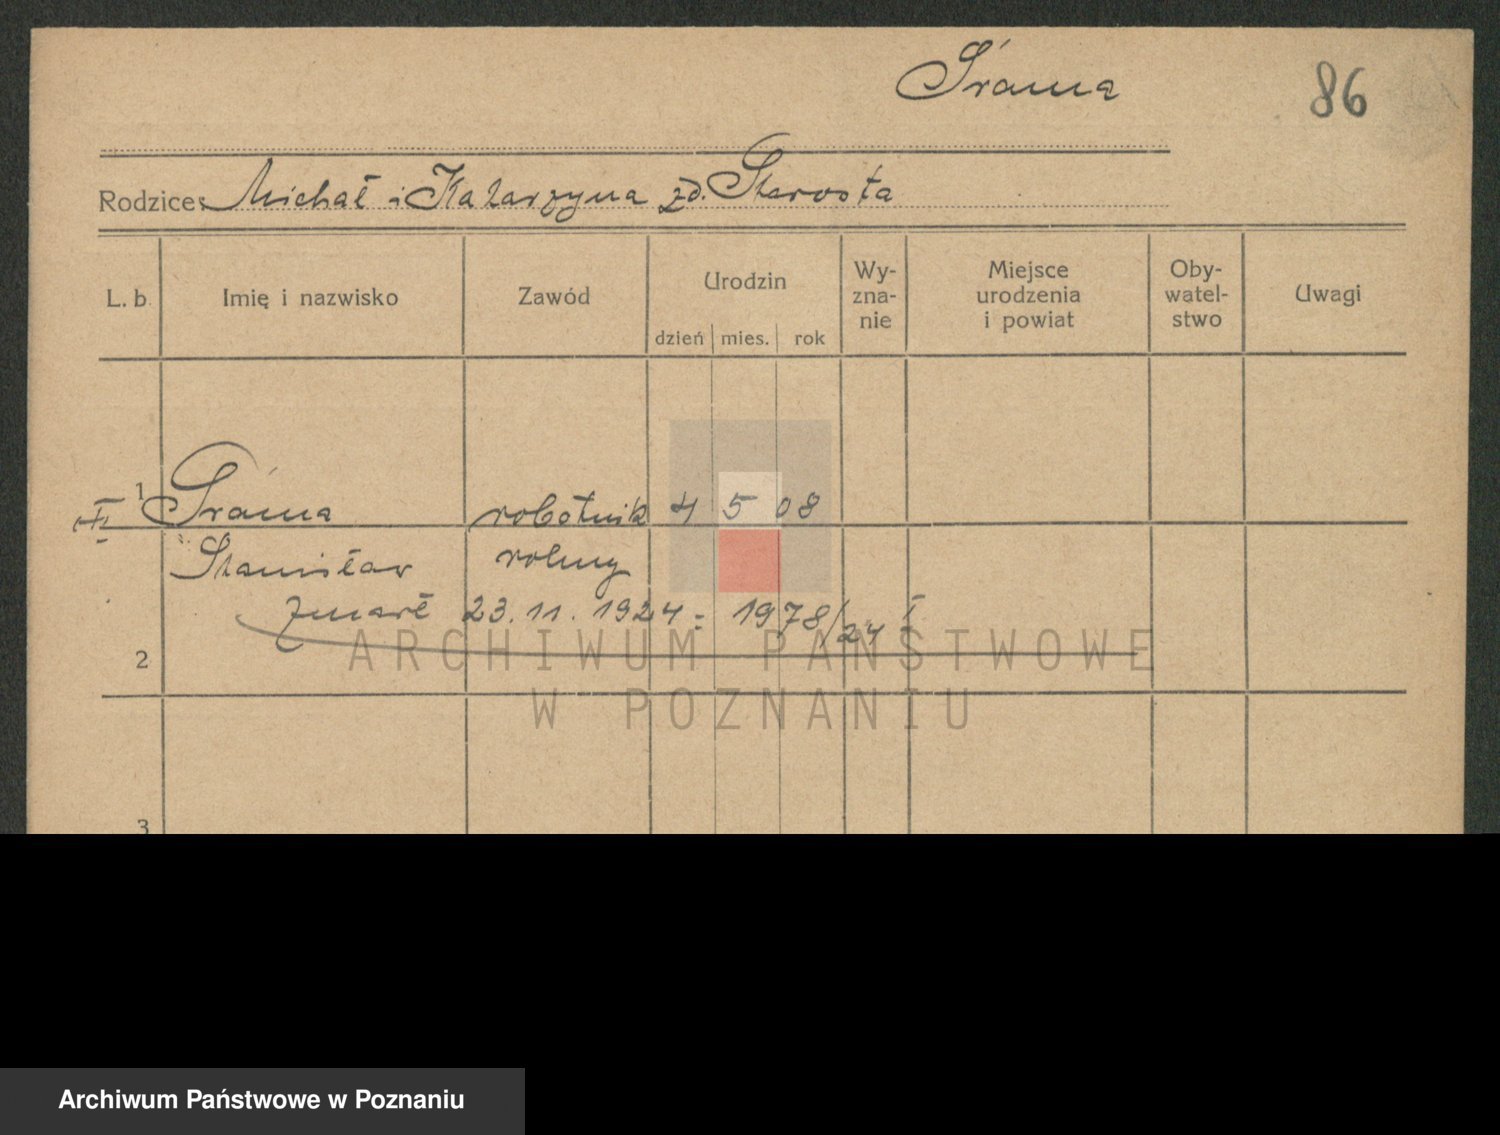 Śrama
86
Rodzice: Michał i Katarzyna zd. Starosta
L. b. Imię i nazwisko Zawód Urodzin dzień mies. rok Wy-
zna-
nie Miejsce
urodzenia
i powiat Oby-
watel-
stwo Uwagi
1 Śrama robotnik 4 5 08
Stanisław rolny
zmarł 23.11.1924 = 1978/24
2
3
ARCHIWUM PAŃSTWOWE
W POZNANIU
Archiwum Państwowe w Poznaniu